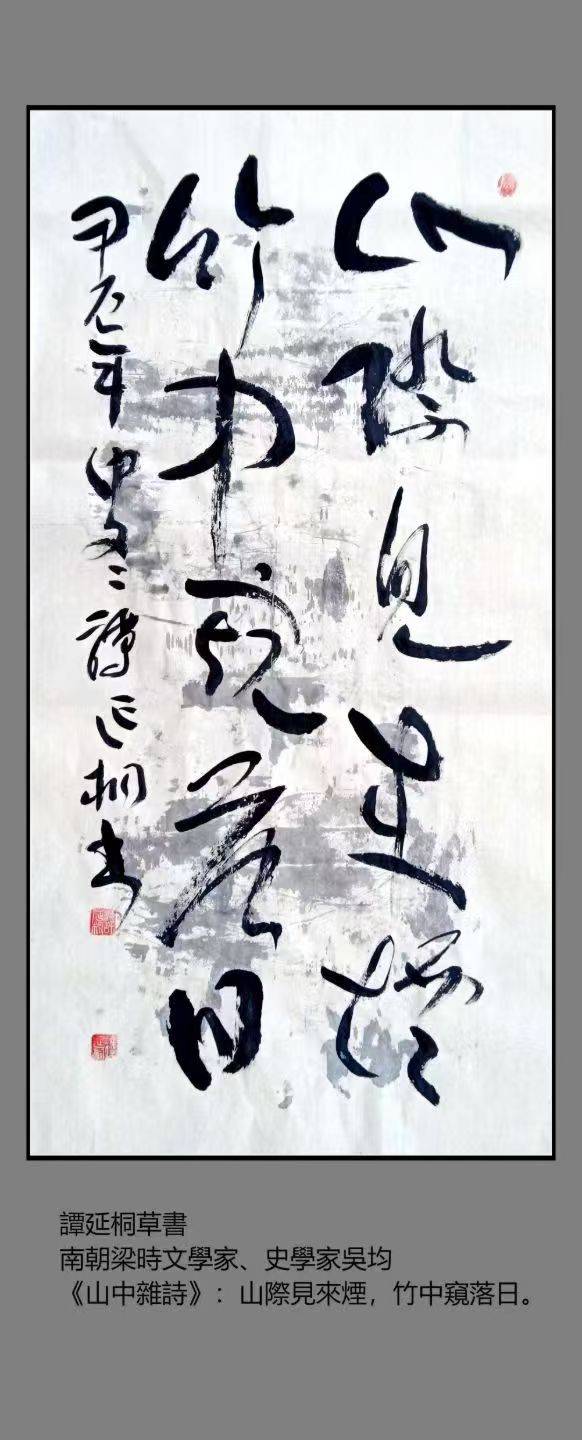 山際見来煙
竹中窺落日
甲辰年中冬譚延桐書
譚延桐草書
南朝梁時文學家、史學家吳均
《山中雜詩》：山際見來煙，竹中窺落日。